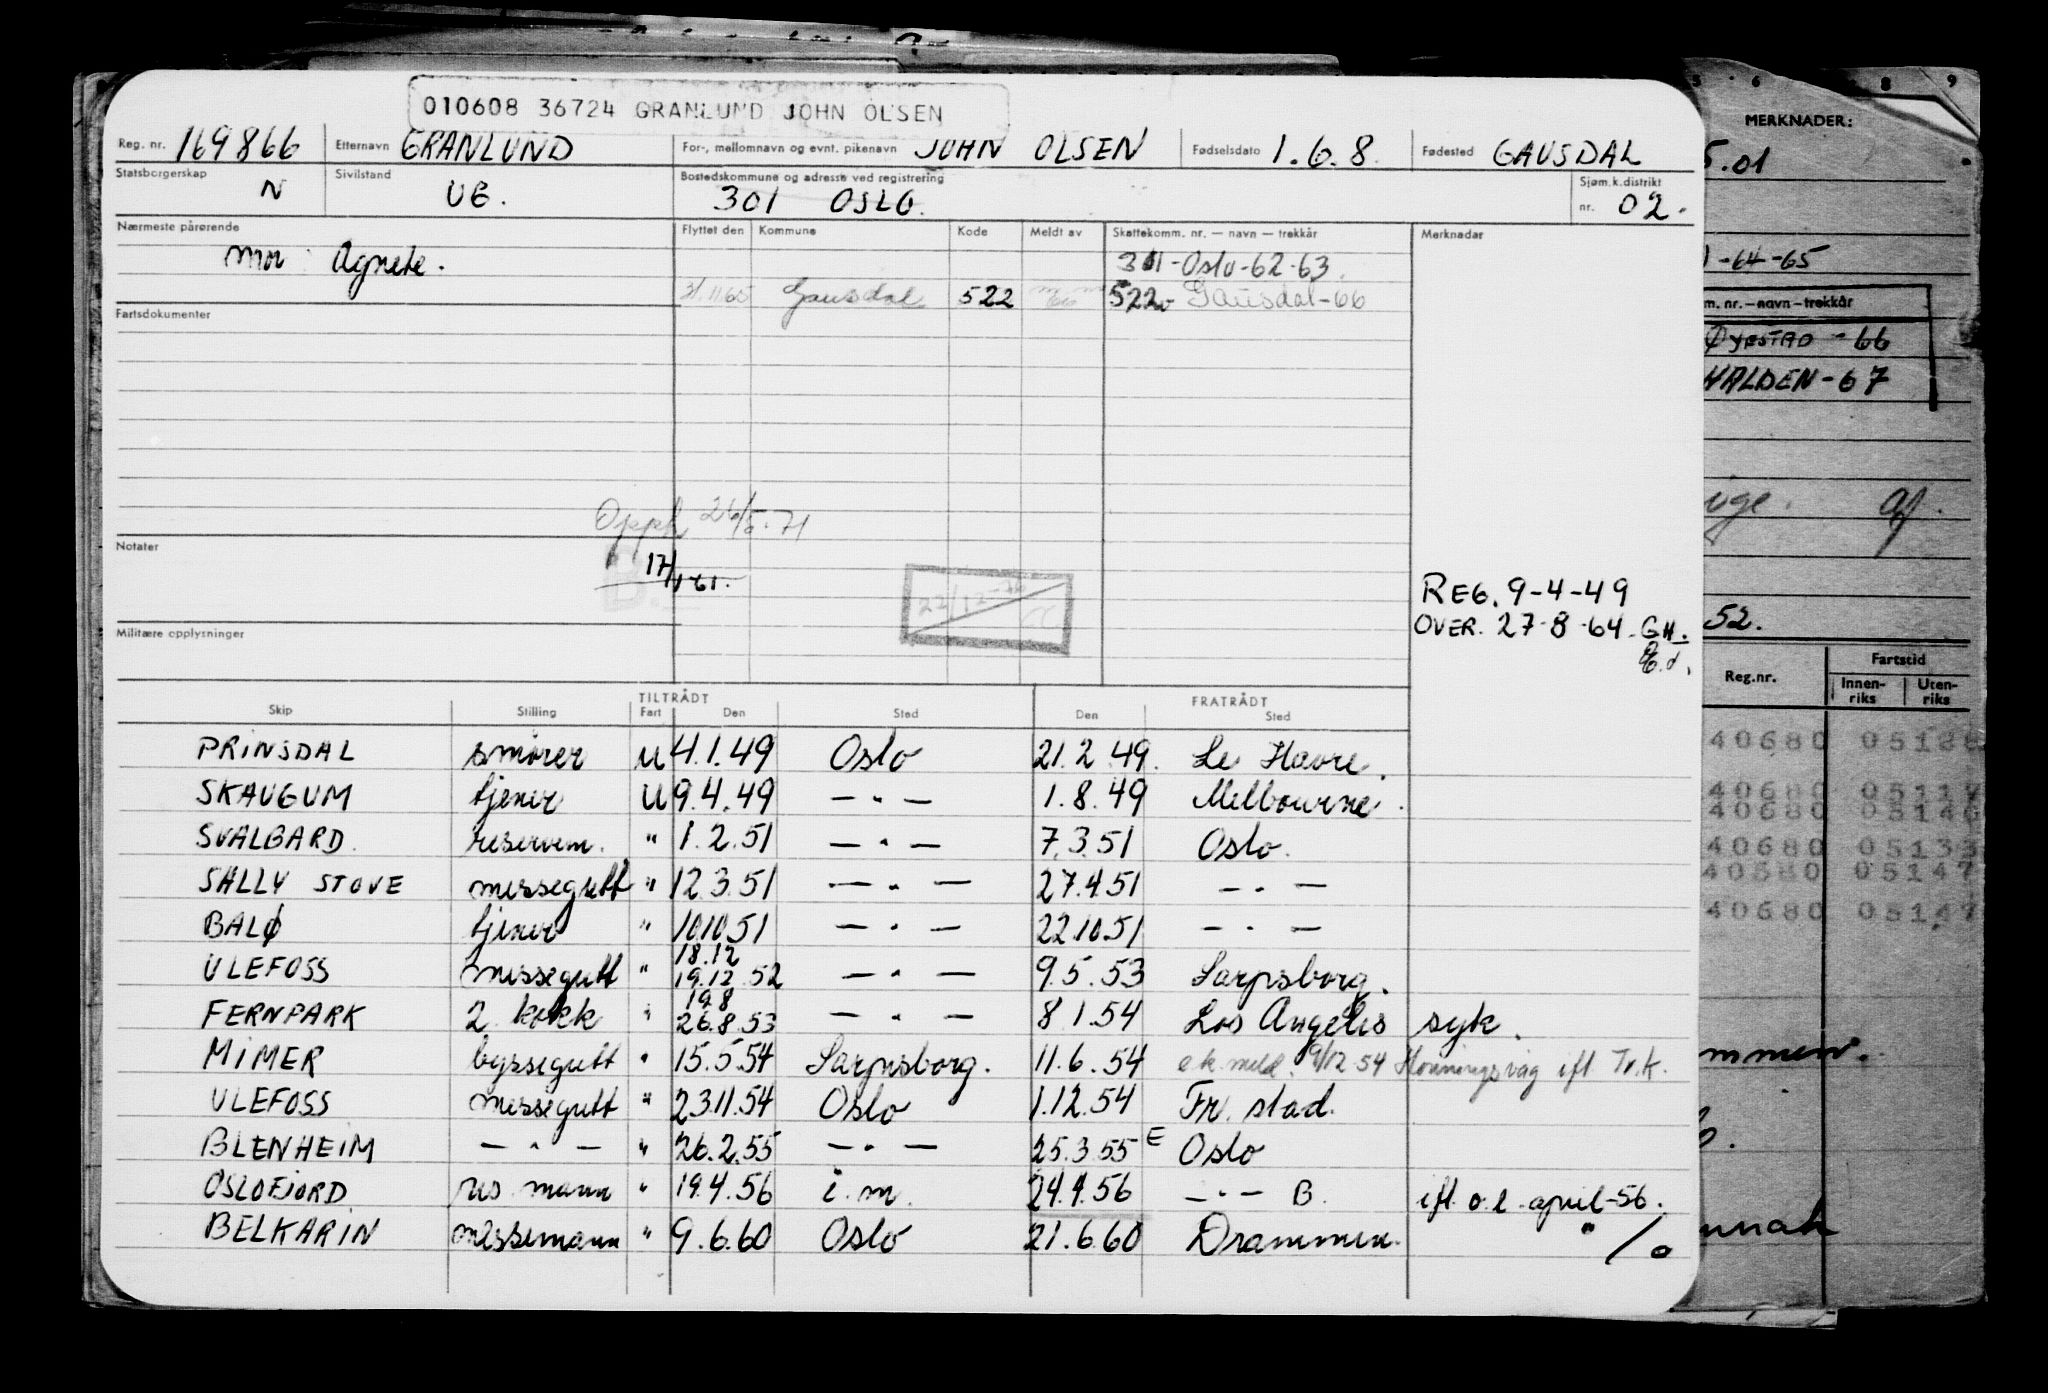 010608 36724 GRANLUND JOHN OLSEN
Reg. nr. 169866 Etternavn GRANLUND For-, mellomnavn og evnt. pikenavn JOHN OLSEN Fødselsdato 1.6.8. Fødested GAUSDAL
Statsborgerskap N Sivilstand UG. Bostedskommune og adresse ved registrering 301 OSLO. Sjøm.k.distrikt nr. 02.
Nærmeste pårørende Flyttet den Kommune Kode Meldt av Skattekomm. nr. — navn — trekkår Merknader
mor: Agnete. 301-Oslo-62-63.
31.11.65 Gausdal 522 522 Gausdal-66
Fartsdokumenter
Opph 26/5-71
Notater
17/1-61.
22/12
REG. 9-4-49
OVER. 27-8-64. GH.
Militære opplysninger
TILTRÅDT FRATRÅDT
Skip Stilling Fart Den Sted Den Sted
PRINSDAL smører U 4.1.49 Oslo 21.2.49. Le Havre.
SKAUGUM tjener U 9.4.49 — " — 1.8.49 Melbourne.
SVALBARD. reservem. " 1.2.51 — " — 7.3.51 Oslo.
SALLY STOVE messegutt " 12.3.51 — " — 27.4.51 — " —
BALØ tjener " 10.10.51 — " — 22.10.51 — " —
18.12
ULEFOSS messegutt " 19.12.52 — " — 9.5.53 Sarpsborg.
19.8
FERNPARK 2. kokk " 26.8.53 — " — 8.1.54 Los Angeles syk.
MIMER byssegutt " 15.5.54 Sarpsborg. 11.6.54 e.k. meld. 9/12 54 Honningsvåg ifl. Tr.k.
ULEFOSS messegutt " 23.11.54 Oslo 1.12.54 Fr. stad.
BLENHEIM — " — " 26.2.55 — " — 25.3.55 E Oslo
OSLOFJORD res. mann " 19.4.56 i.m. 24.4.56 — " — B. ifl. o.l. april-56.
BELKARIN messemann " 9.6.60 Oslo 21.6.60 Drammen. " /o
5 6 8 9
MERKNADER:
5.01
-64-65
m. nr. — navn — trekkår
ØYESTAD - 66
HALDEN - 67
52.
Reg.nr. Fartstid
Innen-riks Uten-riks
40680 0518
40680 0511
40680 0514
40680 0513
40680 05147
40680 05147
mmen.